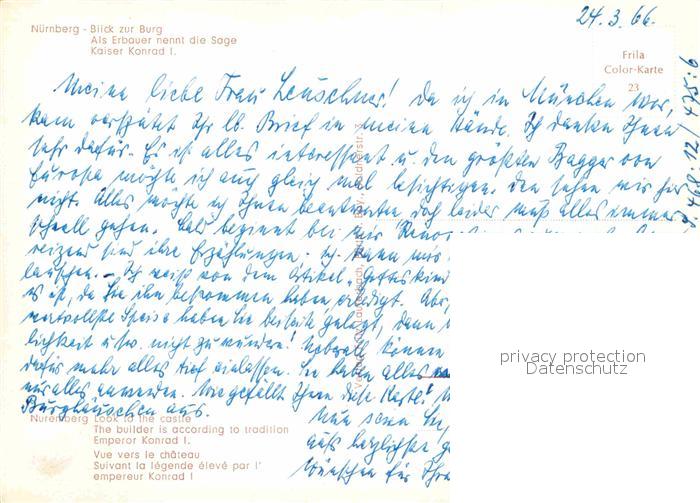 Nürnberg - Blick zur Burg
Als Erbauer nennt die Sage
Kaiser Konrad I.
24. 3. 66.
Frila
Color-Karte
23
Meine liebe Frau Leuschner! Da ich in München war,
kam verspätet Ihr lb. Brief in meine Hände. Ich danke Ihnen
sehr dafür. Es ist alles interessant u. den größten Bagger von
Europa möchte ich auch gleich mal besichtigen. Den sehen wir hier
nicht. Alles möchte ich Ihnen beantworten, doch leider muß alles immer
schnell gehen. Bald beginnt bei mir
reizend sind ihre Erzählungen, ich kann
lauschen. - Ich weiß von dem Artikel „Gotteskind
es ist, da Sie ihn bekommen haben erledigt. Aber,
wertvollste Speise haben Sie beiseite gelegt, dann
lichkeit usw. nicht zu wundern! Überall können
dafür mehr alles tief einlassen. Sie haben alles
nur alles anwenden. Wie gefällt Ihnen diese Karte?
Burghäuschen aus.
Nun seien Sie,
aufs herzlichste
Wünschen für Ihre
Nuremberg Look to the castle
The builder is according to tradition
Emperor Konrad I.
Vue vers le château
Suivant la légende élevé par l'
empereur Konrad I
privacy protection
Datenschutz